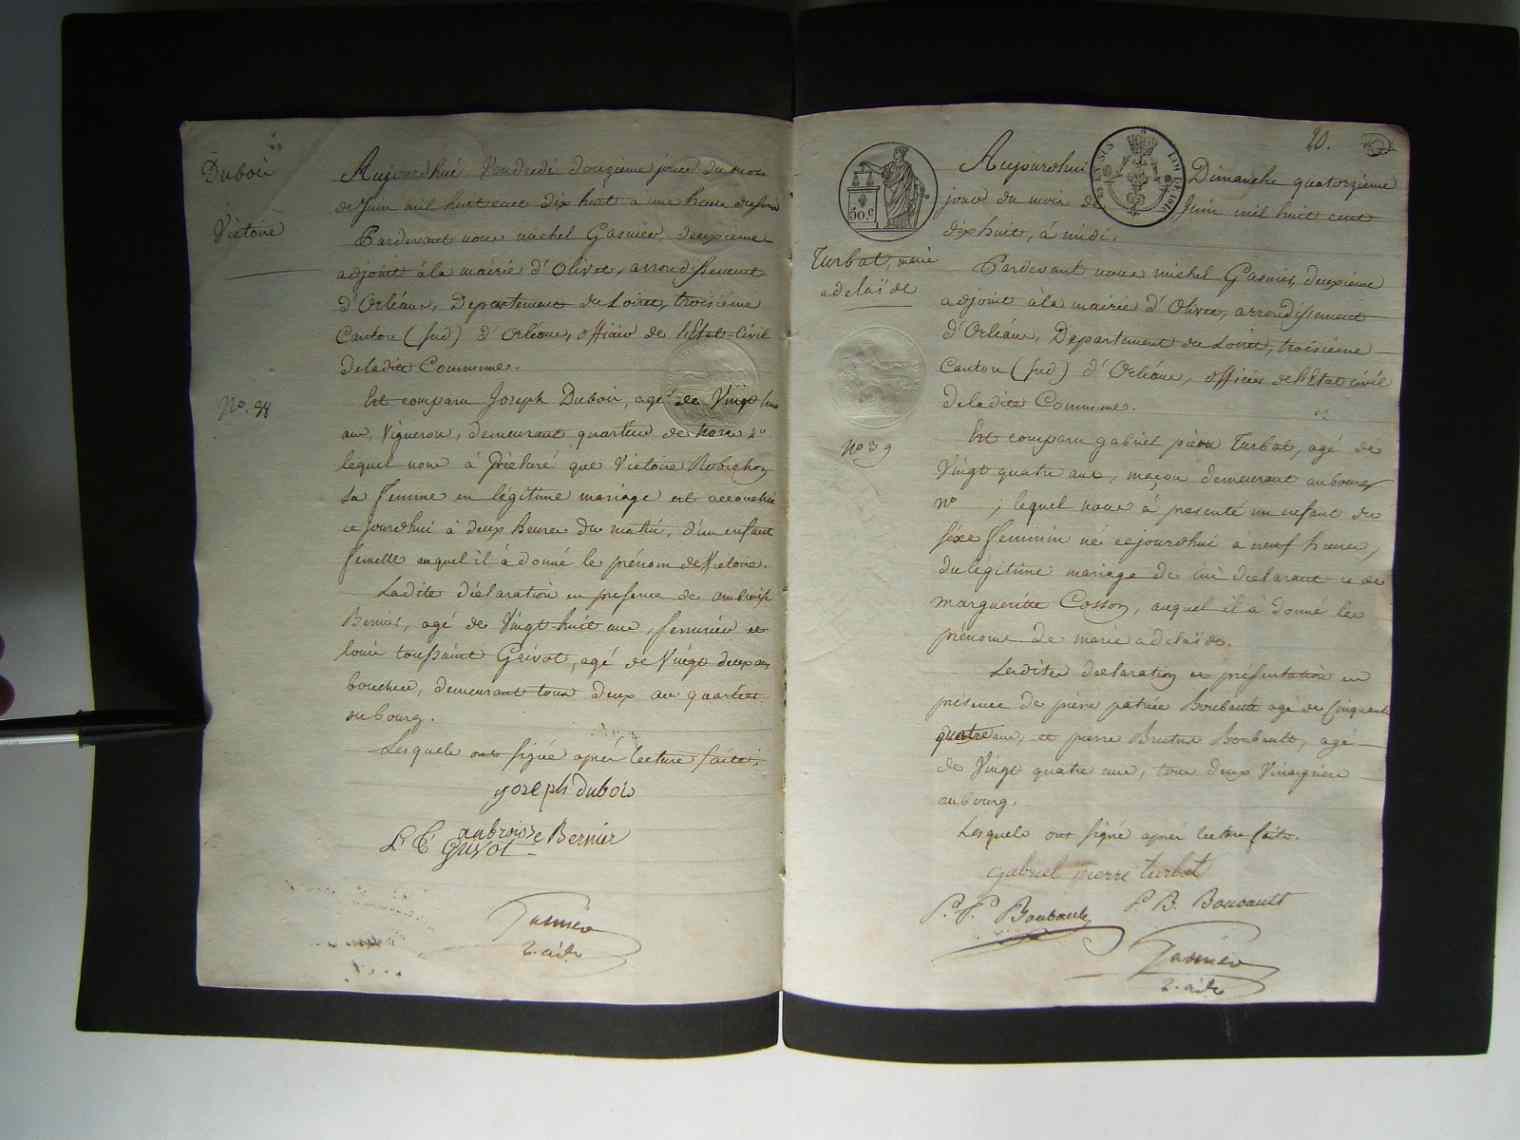 Dubois
Victoire
Aujourdhui Vendredi douzieme jour du mois
de Juin mil huit cent dix huit a une heure
Pardevant nous michel Gasnier, deuxieme
adjoint à la mairie d'Olivet, arrondissement
d'Orléans, Departement du Loiret, troisième
Canton (sud) d'Orléans, officier de l'Etat-Civil
de ladite Commune.
No. 38
Est comparu Joseph Dubois, agé de Vingt
ans, Vigneron, demeurant quartier de
lequel nous à déclaré que Victoire Robichon
sa femme en légitime mariage est accouchée
ce jourdhui à deux heures du matin, d'un enfant
femelle auquel il à donné le prénom de Victoire.
Ladite déclaration en presence de ambroise
Bernier, agé de Vingt huit ans, serrurier et
louis toussaint Grivot, agé de Vingt deux ans
boucher, demeurant tous deux au quartier
du bourg.
Lesquels ont signé après lecture faite.
joseph dubois
anbroise Bernier
L T Grivot
Gasnier
2. adj.
20.
50.c
Aujourdhui Dimanche quatorzième
jour du mois de Juin mil huit cent
dix huit, à midi.
Turbat, marie
adelaïde
Pardevant nous michel Gasnier, deuxième
adjoint à la mairie d'Olivet, arrondissement
d'Orléans, Département du Loiret, troisième
Canton (sud) d'Orléans, officier de l'Etat civil
de ladite Commune.
No 39
Est comparu gabriel pierre Turbat, agé de
Vingt quatre ans, maçon demeurant au bourg
no , lequel nous à presenté un enfant du
sexe feminin né cejourdhui à neuf heures,
du légitime mariage de lui déclarant et de
margueritte Cosson, auquel il à donné les
prénoms de marie adelaïde.
Lesdites déclaration et présentation en
présence de pierre patrice Boubault agé de cinquante
quatre ans, et pierre Brutus Boubault, agé
de Vingt quatre ans, tous deux Vinaigriers
au bourg.
Lesquels ont signé après lecture faite.
gabriel pierre turbat
P. P. Boubault P. B. Bouvault
Gasnier
2. adj.